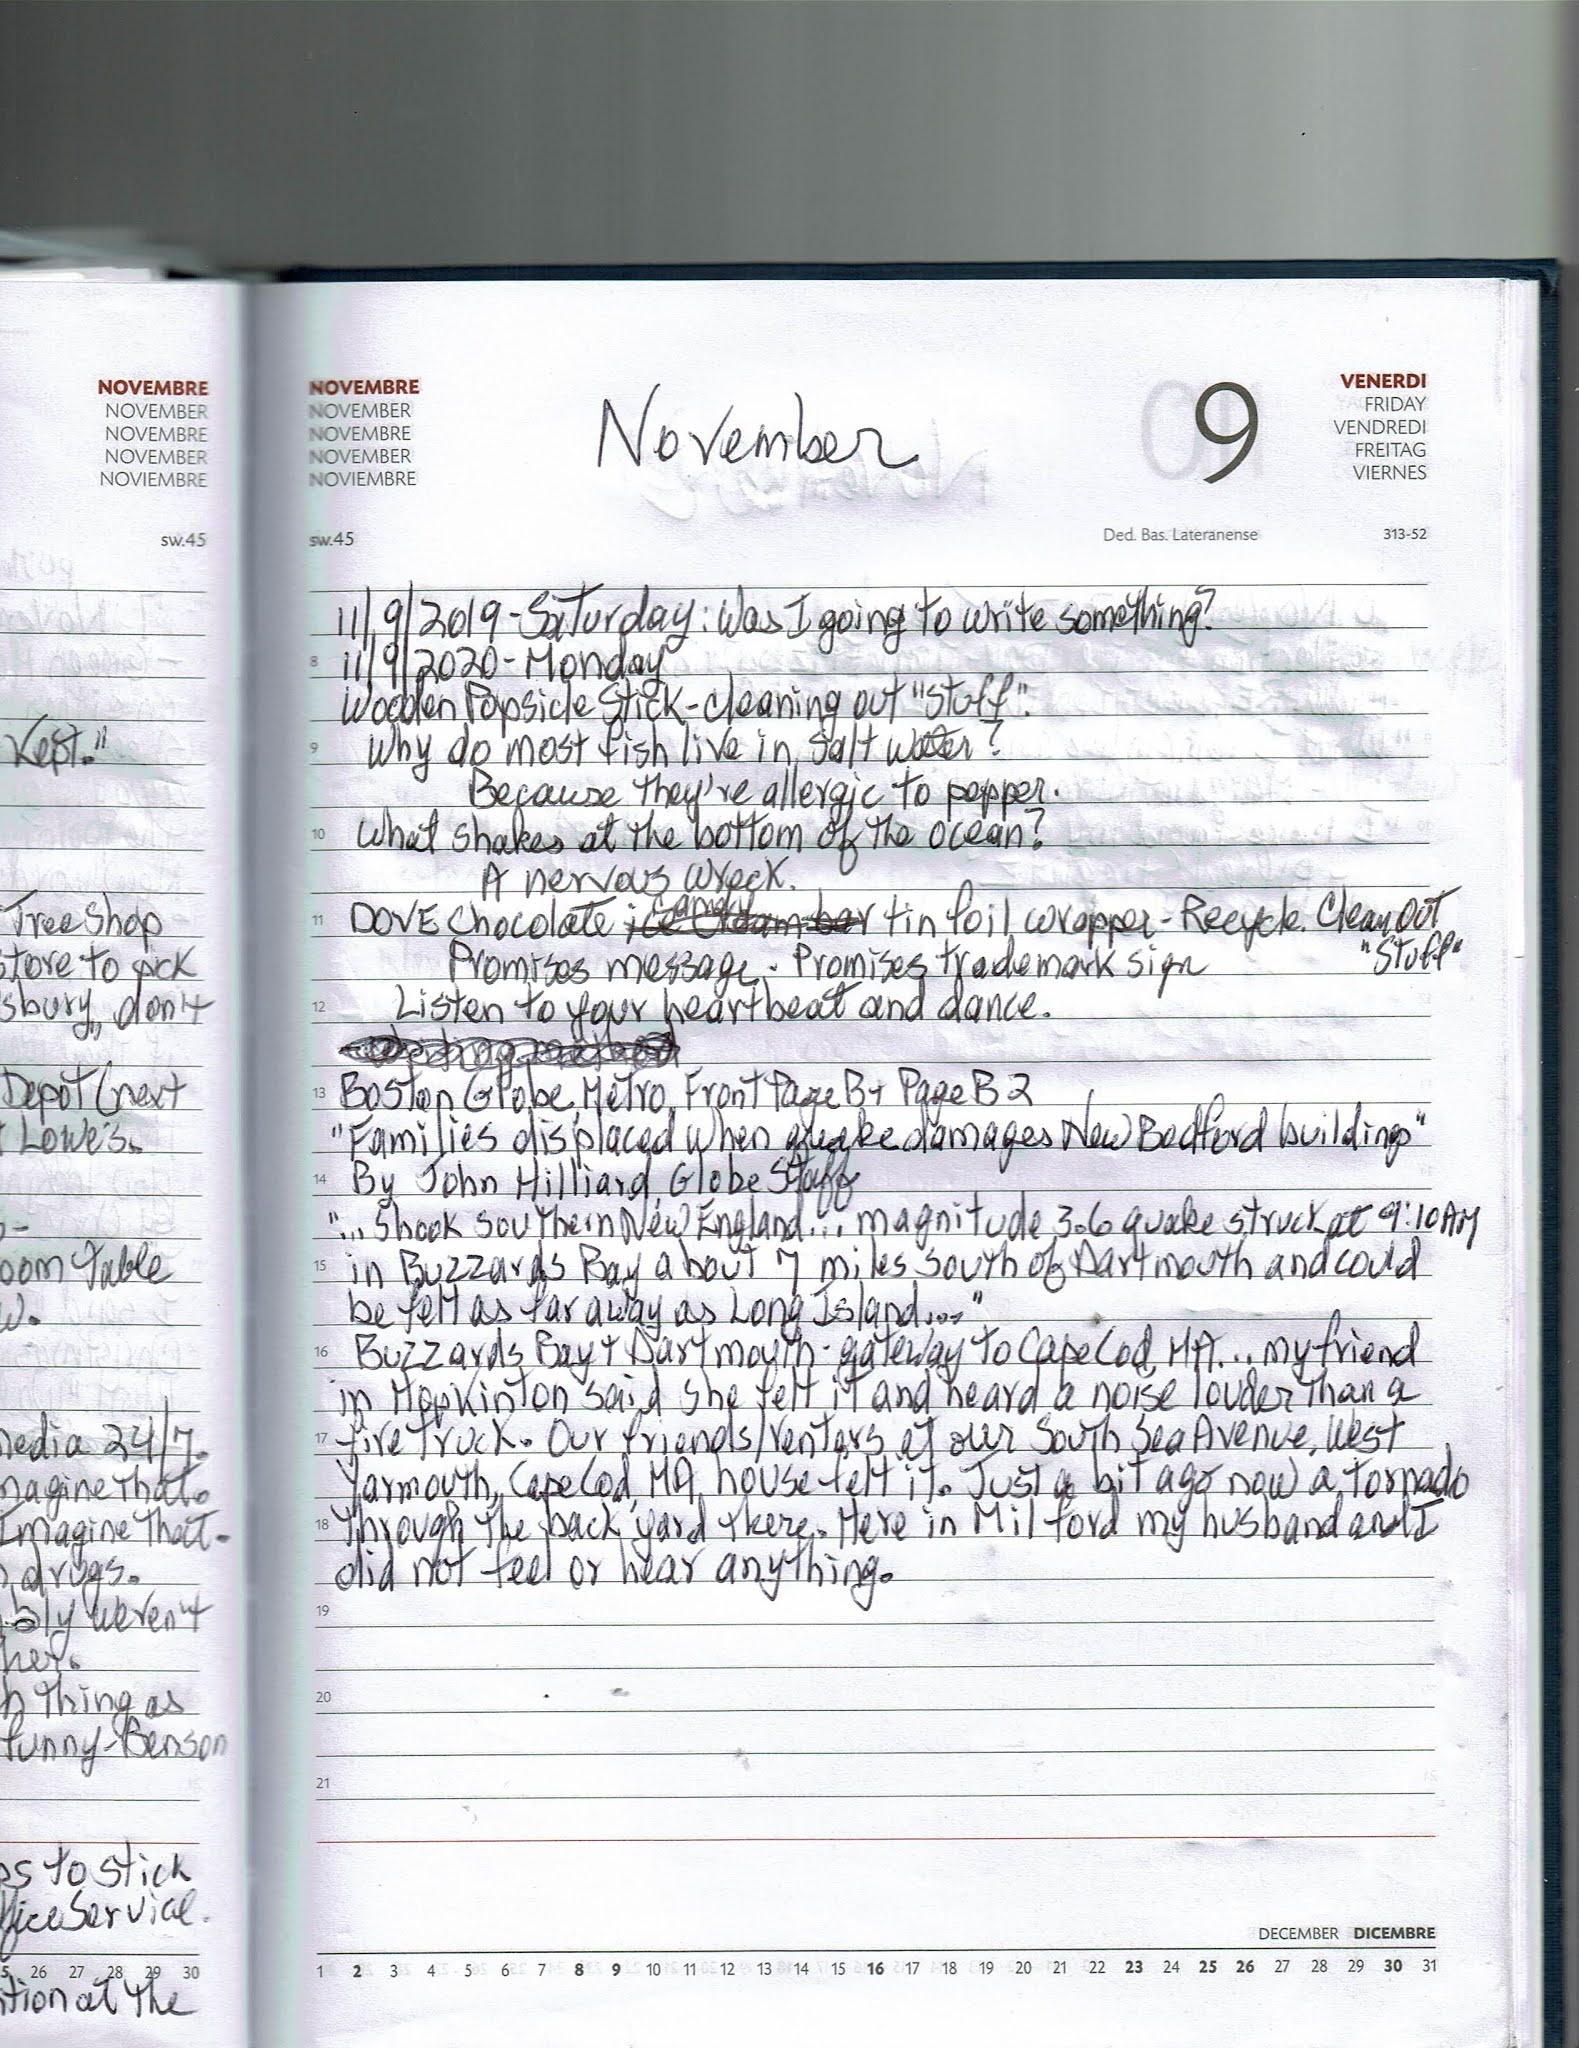 NOVEMBRE
NOVEMBER
NOVEMBRE
NOVEMBER
NOVIEMBRE
sw.45
Kept."
Tree Shop
store to pick
sbury, don't
Depot (next
Lowe's.
oom table
w.
media 24/7.
magine that.
Imagine that.
drugs.
bly weren't
her.
h thing as
funny-Benson
es to stick
ffice Service.
26 27 28 29 30
ition at the
NOVEMBRE
NOVEMBER
NOVEMBRE
NOVEMBER
NOVIEMBRE
sw.45
November
9
VENERDI
FRIDAY
VENDREDI
FREITAG
VIERNES
Ded. Bas. Lateranense
313-52
11/9/2019-Saturday: Was I going to write something?
8 11/9/2020-Monday
Wooden Popsicle Stick-cleaning out "stuff".
9 Why do most fish live in salt water?
Because they're allergic to pepper.
10 What shakes at the bottom of the ocean?
A nervous wreck.
candy
11 DOVE Chocolate ice cream bar tin foil wrapper-Recycle. Clean out
Promises message. Promises trademark sign "Stuff"
12 Listen to your heartbeat and dance.
13 Boston Globe, Metro, Front Page B + Page B 2
"Families displaced when quake damages New Bedford buildings"
14 By John Hilliard, Globe Staff
"... shook southern New England... magnitude 3.6 quake struck at 9:10 AM
15 in Buzzards Bay about 7 miles south of Dartmouth and could
be felt as far away as Long Island..."
16 Buzzards Bay + Dartmouth-gateway to Cape Cod, MA... my friend
in Hopkinton said she felt it and heard a noise louder than a
17 fire truck. Our friends/renters at our South Sea Avenue, West
Yarmouth, Cape Cod, MA house felt it. Just a bit ago now a tornado
18 through the back yard there. Here in Milford my husband and I
did not feel or hear anything.
19
20
21
DECEMBER DICEMBRE
1 2 3 4 5 6 7 8 9 10 11 12 13 14 15 16 17 18 19 20 21 22 23 24 25 26 27 28 29 30 31